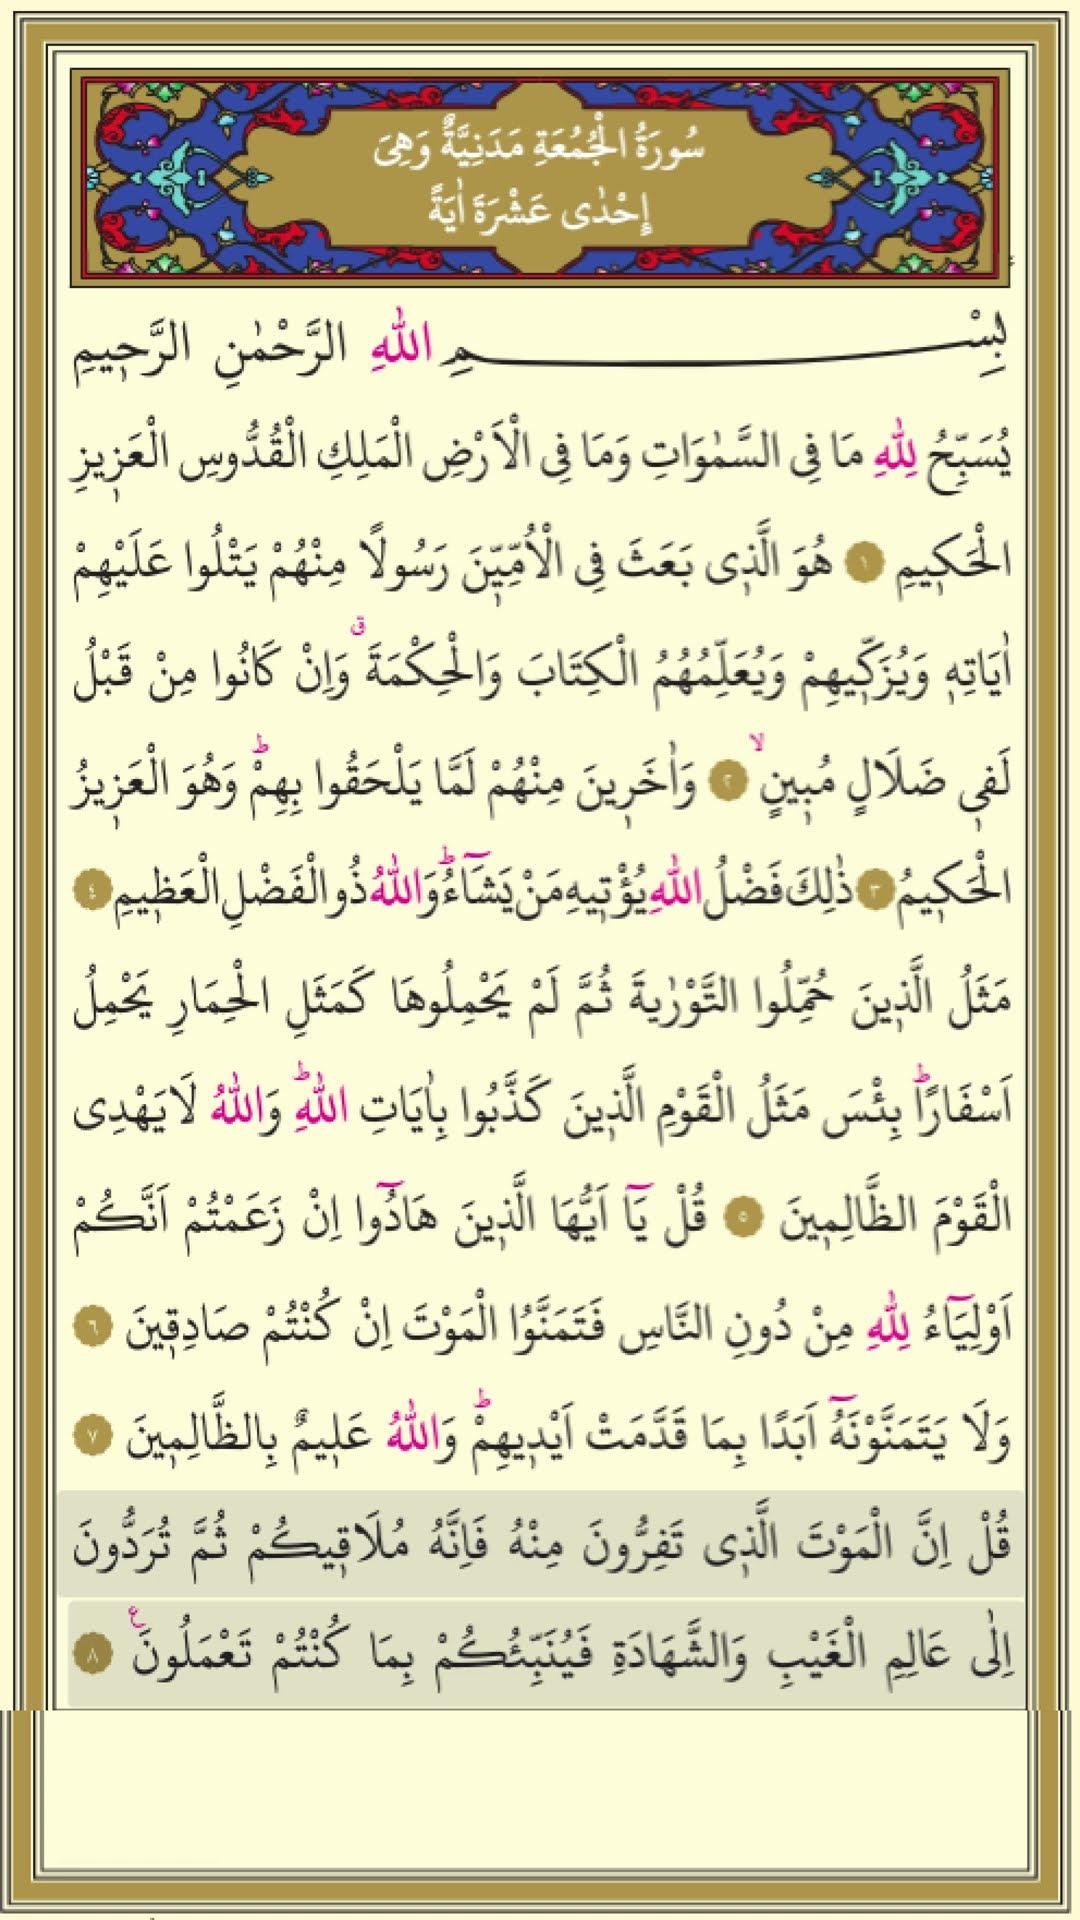 سُورَةُ الْجُمُعَةِ مَدَنِيَّةٌ وَهِىَ
إِحْدٰى عَشْرَةَ اٰيَةً
بِسْمِ اللّٰهِ الرَّحْمٰنِ الرَّحٖيمِ
يُسَبِّحُ لِلّٰهِ مَا فِى السَّمٰوَاتِ وَمَا فِى الْاَرْضِ الْمَلِكِ الْقُدُّوسِ الْعَزٖيزِ
الْحَكٖيمِ ١ هُوَ الَّذٖى بَعَثَ فِى الْاُمِّيّٖنَ رَسُولًا مِنْهُمْ يَتْلُوا عَلَيْهِمْ
اٰيَاتِهٖ وَيُزَكّٖيهِمْ وَيُعَلِّمُهُمُ الْكِتَابَ وَالْحِكْمَةَ ق وَاِنْ كَانُوا مِنْ قَبْلُ
لَفٖى ضَلَالٍ مُبٖينٍ ۙ ٢ وَاٰخَرٖينَ مِنْهُمْ لَمَّا يَلْحَقُوا بِهِمْ ط وَهُوَ الْعَزٖيزُ
الْحَكٖيمُ ٣ ذٰلِكَ فَضْلُ اللّٰهِ يُؤْتٖيهِ مَنْ يَشَٓاءُ ط وَاللّٰهُ ذُو الْفَضْلِ الْعَظٖيمِ ٤
مَثَلُ الَّذٖينَ حُمِّلُوا التَّوْرٰيةَ ثُمَّ لَمْ يَحْمِلُوهَا كَمَثَلِ الْحِمَارِ يَحْمِلُ
اَسْفَارًا ط بِئْسَ مَثَلُ الْقَوْمِ الَّذٖينَ كَذَّبُوا بِاٰيَاتِ اللّٰهِ ط وَاللّٰهُ لَا يَهْدِى
الْقَوْمَ الظَّالِمٖينَ ٥ قُلْ يَٓا اَيُّهَا الَّذٖينَ هَادُٓوا اِنْ زَعَمْتُمْ اَنَّكُمْ
اَوْلِيَٓاءُ لِلّٰهِ مِنْ دُونِ النَّاسِ فَتَمَنَّوُا الْمَوْتَ اِنْ كُنْتُمْ صَادِقٖينَ ٦
وَلَا يَتَمَنَّوْنَهُٓ اَبَدًا بِمَا قَدَّمَتْ اَيْدٖيهِمْ ط وَاللّٰهُ عَلٖيمٌ بِالظَّالِمٖينَ ٧
قُلْ اِنَّ الْمَوْتَ الَّذٖى تَفِرُّونَ مِنْهُ فَاِنَّهُ مُلَاقٖيكُمْ ثُمَّ تُرَدُّونَ
اِلٰى عَالِمِ الْغَيْبِ وَالشَّهَادَةِ فَيُنَبِّئُكُمْ بِمَا كُنْتُمْ تَعْمَلُونَ ع ٨